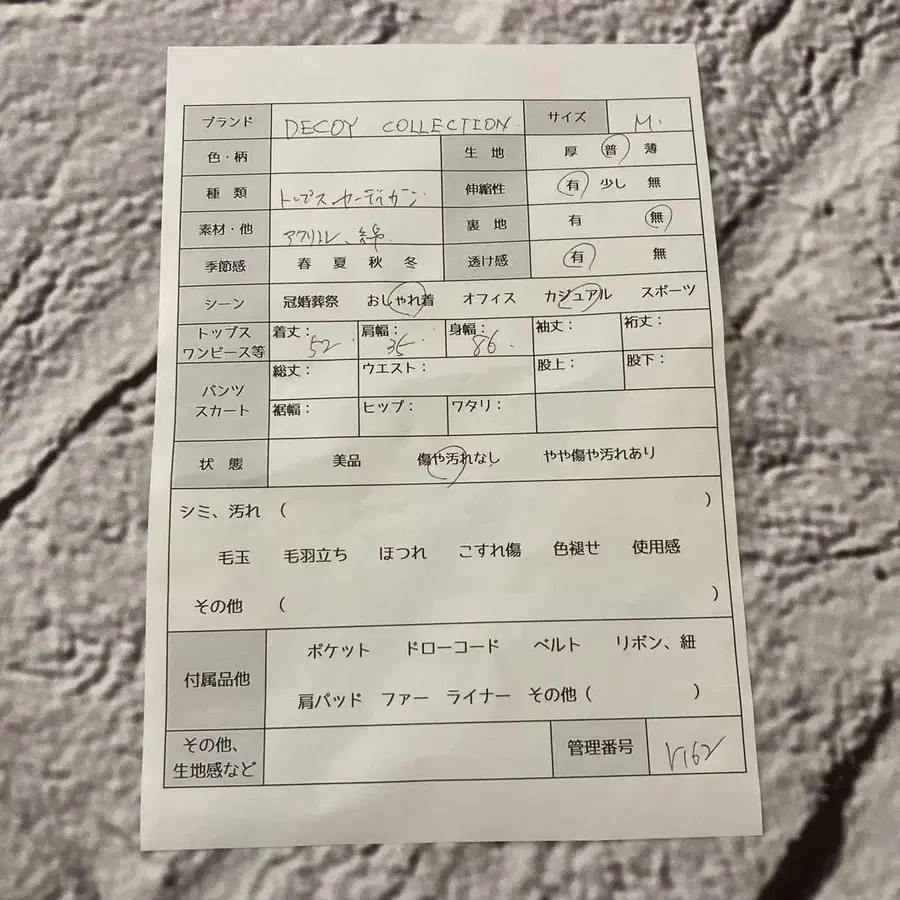 ブランド DECOY COLLECTION. サイズ M.
色・柄 生 地 厚 普 薄
種 類 トップス カーディガン 伸縮性 有 少し 無
素材・他 アクリル、綿 裏 地 有 無
季節感 春 夏 秋 冬 透け感 有 無
シーン 冠婚葬祭 おしゃれ着 オフィス カジュアル スポーツ
トップス ワンピース等 着丈: 52 肩幅: 35 身幅: 86 袖丈: 裄丈:
パンツ スカート 総丈: ウエスト: 股上: 股下:
裾幅: ヒップ: ワタリ:
状 態 美品 傷や汚れなし やや傷や汚れあり
シミ、汚れ ( )
毛玉 毛羽立ち ほつれ こすれ傷 色褪せ 使用感
その他 ( )
付属品他 ポケット ドローコード ベルト リボン、紐
肩パッド ファー ライナー その他 ( )
その他、生地感など 管理番号 V162